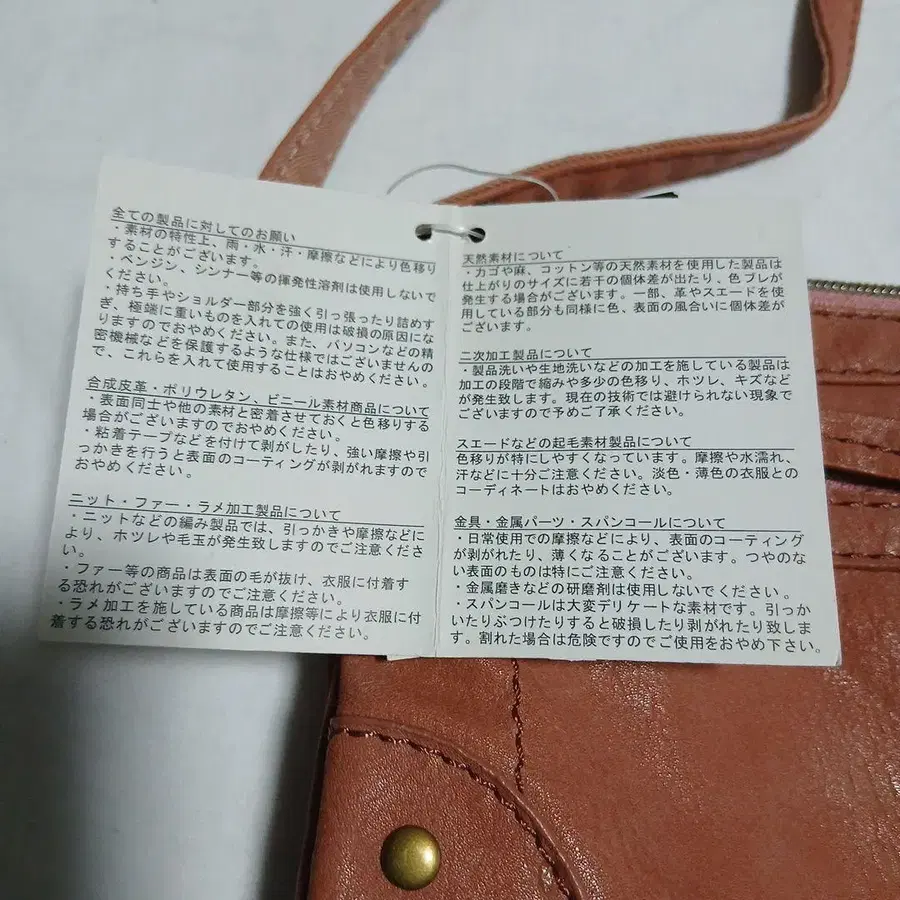 全ての製品に対してのお願い
・素材の特性上、雨・水・汗・摩擦などにより色移り
することがございます。
・ベンジン、シンナー等の揮発性溶剤は使用しないで
ください。
・持ち手やショルダー部分を強く引っ張ったり詰めす
ぎ、極端に重いものを入れての使用は破損の原因にな
りますのでおやめください。また、パソコンなどの精
密機械などを保護するような仕様ではございませんの
で、これらを入れて使用することはおやめください。
合成皮革・ポリウレタン、ビニール素材商品について
・表面同士や他の素材と密着させておくと色移りする
場合がございますのでおやめください。
・粘着テープなどを付けて剥がしたり、強い摩擦や引
っかきを行うと表面のコーティングが剥がれますので
おやめください。
ニット・ファー・ラメ加工製品について
・ニットなどの編み製品では、引っかきや摩擦などに
より、ホツレや毛玉が発生致しますのでご注意くださ
い。
・ファー等の商品は表面の毛が抜け、衣服に付着す
る恐れがございますのでご注意ください。
・ラメ加工を施している商品は摩擦等により衣服に付
着する恐れがございますのでご注意ください。
天然素材について
・カゴや麻、コットン等の天然素材を使用した製品は
仕上がりのサイズに若干の個体差が出たり、色ブレが
発生する場合がございます。一部、革やスエードを使
用している部分も同様に色、表面の風合いに個体差が
ございます。
二次加工製品について
・製品洗いや生地洗いなどの加工を施している製品は
加工の段階で縮みや多少の色移り、ホツレ、キズなど
が発生致します。現在の技術では避けられない現象で
ございますので予めご了承ください。
スエードなどの起毛素材製品について
色移りが特にしやすくなっています。摩擦や水濡れ、
汗などに十分ご注意ください。淡色・薄色の衣服との
コーディネートはおやめください。
金具・金属パーツ・スパンコールについて
・日常使用での摩擦などにより、表面のコーティング
が剥がれたり、薄くなることがございます。つやのな
い表面のものは特にご注意ください。
・金属磨きなどの研磨剤は使用しないでください。
・スパンコールは大変デリケートな素材です。引っか
いたりぶつけたりすると破損したり剥がれたり致しま
す。割れた場合は危険ですのでご使用をおやめ下さい。